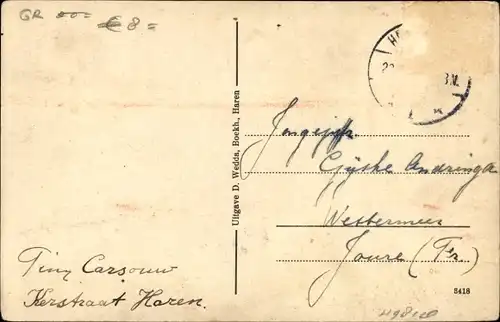 GR
€ 8=
Uitgave D. Wedda, Boekh., Haren
Jongejufr
Gijske Andringa
Westermeer
Joure (Fr.)
Tiny Carsouw
Kerstraat Haren.
5418